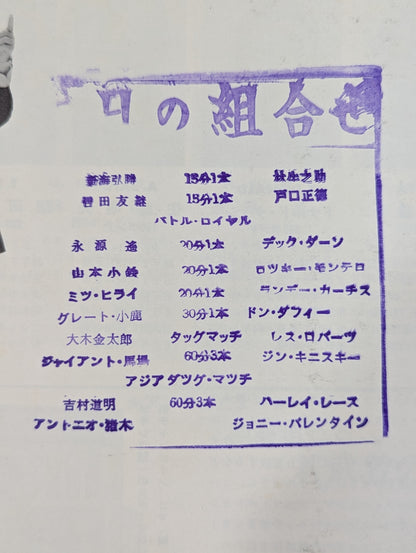 日の組合せ
15分1本
百田友継 15分1本 戸口正徳
バトル・ロイヤル
永源遙 20分1本 デック・ダーン
山本小鉄 20分1本 ロッキー・モンテロ
ミツ・ヒライ 20分1本 ランデー・カーチス
グレート・小鹿 30分1本 ドン・ダフィー
大木金太郎 タッグマッチ レス・ロバーツ
ジャイアント・馬場 60分3本 ジン・キニスキー
アジアダッグ・マッチ
吉村道明 60分3本 ハーレイ・レース
アントニオ・猪木 ジョニー・バレンタイン